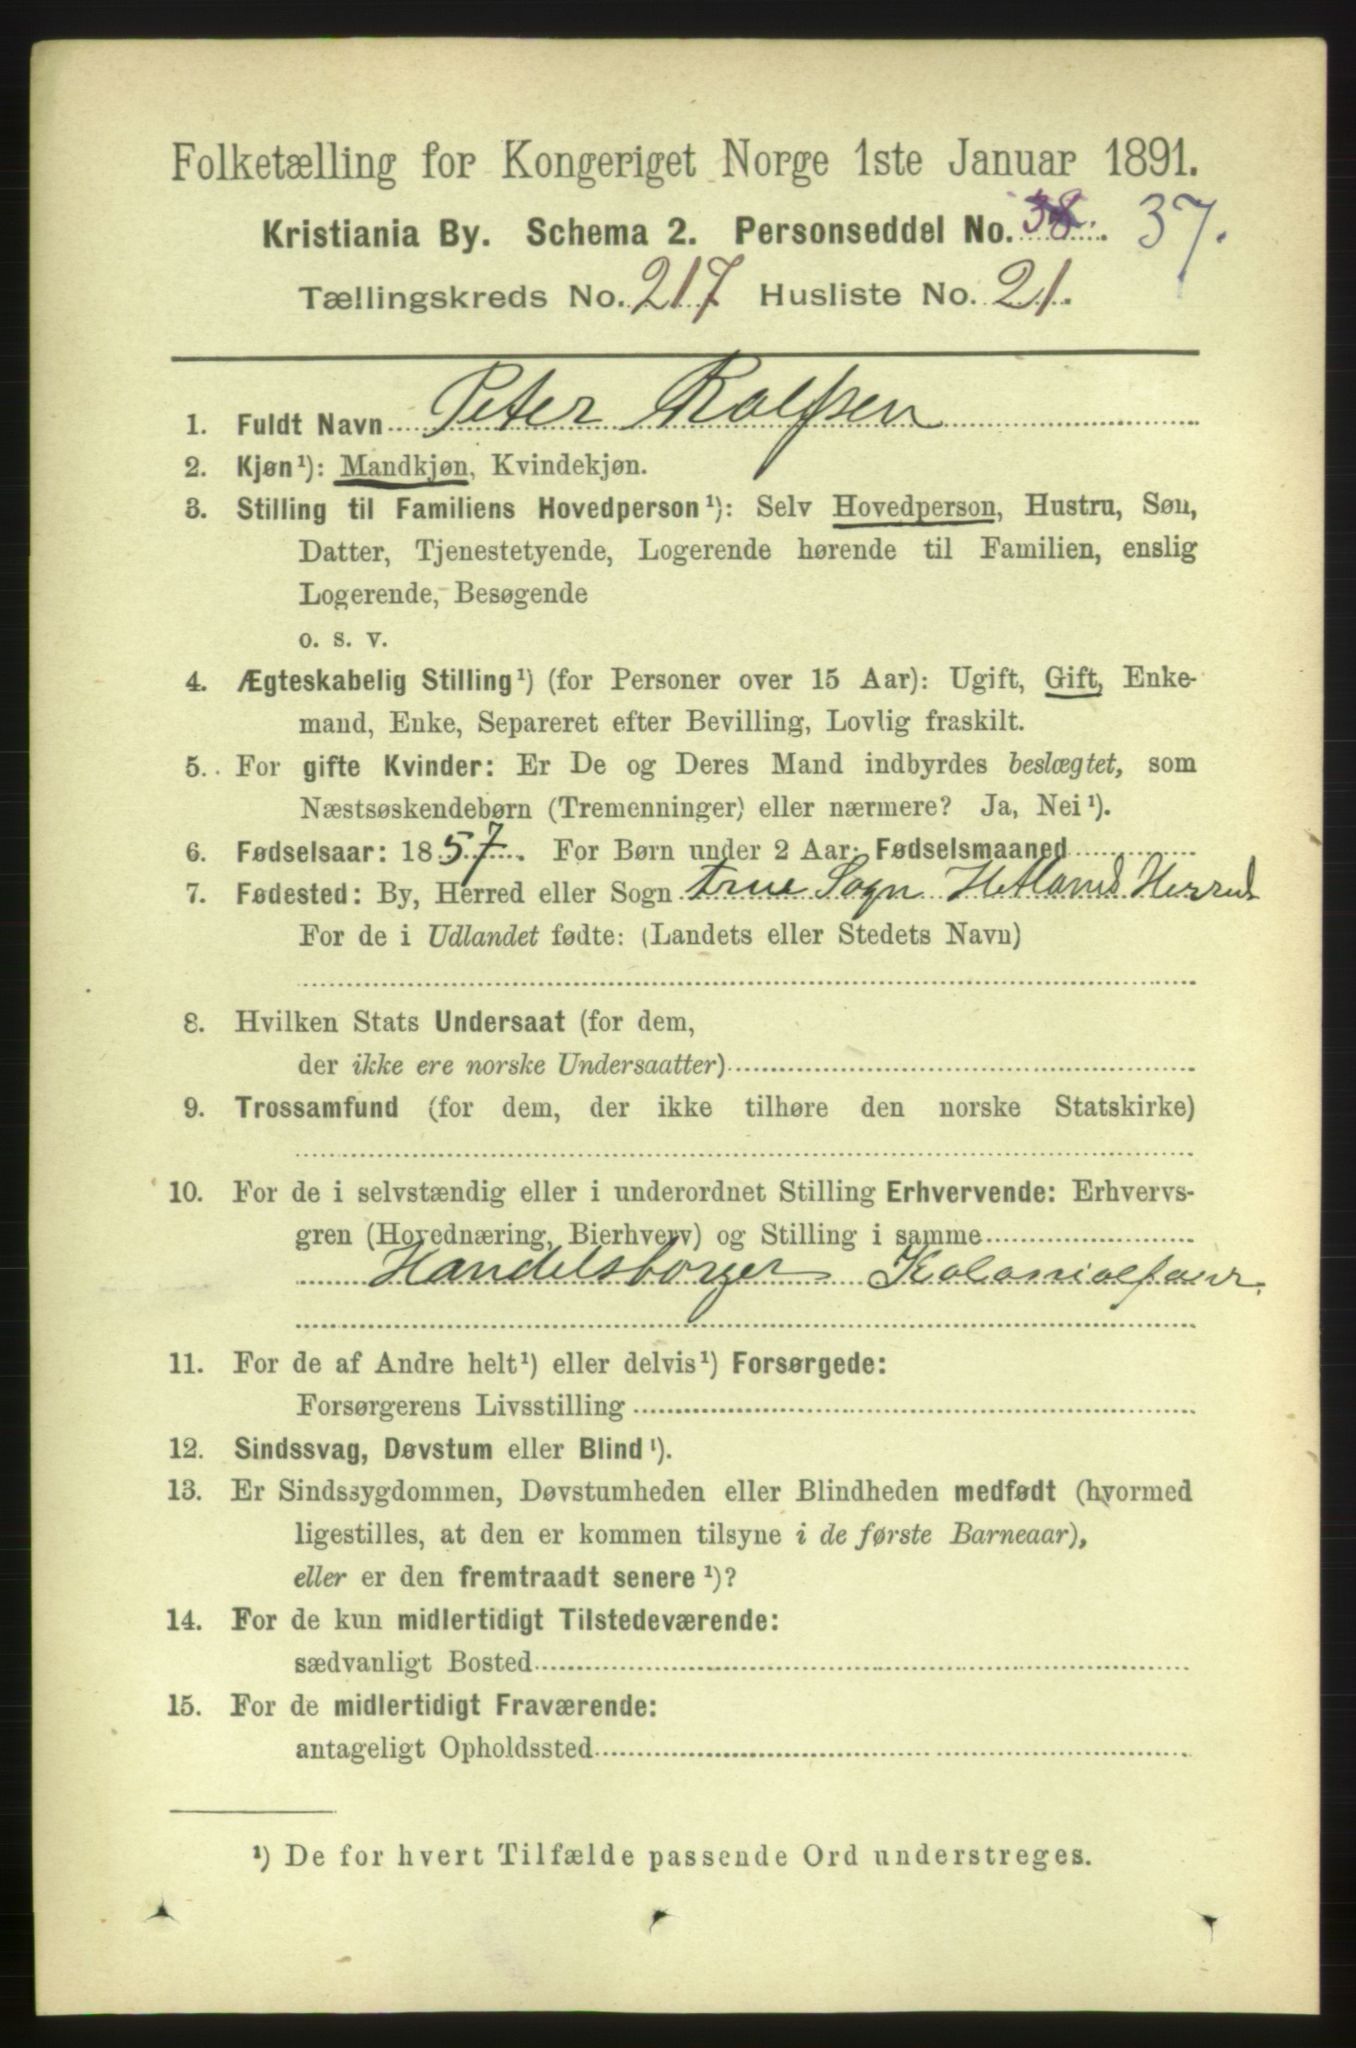 Folketælling for Kongeriget Norge 1ste Januar 1891.
Kristiania By. Schema 2. Personseddel No. 38. 37.
Tællingskreds No. 217 Husliste No. 21.
1. Fuldt Navn Peter Rolfsen
2. Kjøn¹): Mandkjøn, Kvindekjøn.
3. Stilling til Familiens Hovedperson¹): Selv Hovedperson, Hustru, Søn,
Datter, Tjenestetyende, Logerende hørende til Familien, enslig
Logerende, Besøgende
o. s. v.
4. Ægteskabelig Stilling¹) (for Personer over 15 Aar): Ugift, Gift, Enke-
mand, Enke, Separeret efter Bevilling, Lovlig fraskilt.
5. For gifte Kvinder: Er De og Deres Mand indbyrdes beslægtet, som
Næstsøskendebørn (Tremenninger) eller nærmere? Ja, Nei¹).
6. Fødselsaar: 1857. For Børn under 2 Aar: Fødselsmaaned
7. Fødested: By, Herred eller Sogn Frue Sogn Hetlands Herred
For de i Udlandet fødte: (Landets eller Stedets Navn)
8. Hvilken Stats Undersaat (for dem,
der ikke ere norske Undersaatter)
9. Trossamfund (for dem, der ikke tilhøre den norske Statskirke)
10. For de i selvstændig eller i underordnet Stilling Erhvervende: Erhvervs-
gren (Hovednæring, Bierhverv) og Stilling i samme
Handelsborger
11. For de af Andre helt¹) eller delvis¹) Forsørgede:
Forsørgerens Livsstilling
12. Sindssvag, Døvstum eller Blind¹).
13. Er Sindssygdommen, Døvstumheden eller Blindheden medfødt (hvormed
ligestilles, at den er kommen tilsyne i de første Barneaar),
eller er den fremtraadt senere¹)?
14. For de kun midlertidigt Tilstedeværende:
sædvanligt Bosted
15. For de midlertidigt Fraværende:
antageligt Opholdssted
¹) De for hvert Tilfælde passende Ord understreges.